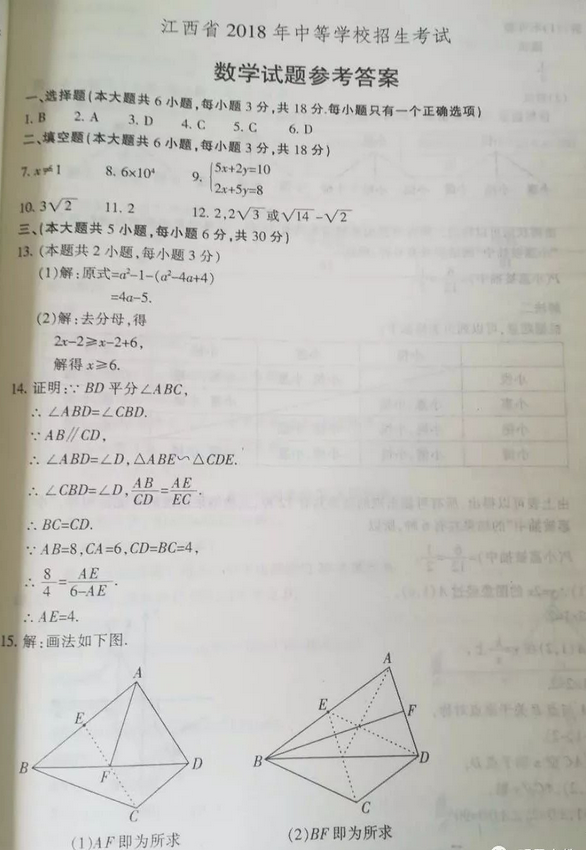 江西省 2018 年中等学校招生考试
数学试题参考答案
一、选择题(本大题共 6 小题,每小题 3 分,共 18 分.每小题只有一个正确选项)
1. B 2. A 3. D 4. C 5. C 6. D
二、填空题(本大题共 6 小题,每小题 3 分,共 18 分)
7. x≠1 8. 6×10⁴ 9. {5x+2y=10
2x+5y=8
10. 3√2 11. 2 12. 2,2√3 或√14-√2
三、(本大题共 5 小题,每小题 6 分,共 30 分)
13. (本题共 2 小题,每小题 3 分)
(1)解:原式=a²-1-(a²-4a+4)
=4a-5.
(2)解:去分母,得
2x-2≥x-2+6,
解得 x≥6.
14. 证明:∵ BD 平分∠ABC,
∴ ∠ABD=∠CBD.
∵ AB∥CD,
∴ ∠ABD=∠D,△ABE∽△CDE.
∴ ∠CBD=∠D, AB/CD=AE/EC.
∴ BC=CD.
∵ AB=8,CA=6,CD=BC=4,
∴ 8/4=AE/(6-AE).
∴ AE=4.
15. 解:画法如下图.
A
E
B F D
C
(1)AF 即为所求
A
E F
B D
C
(2)BF 即为所求